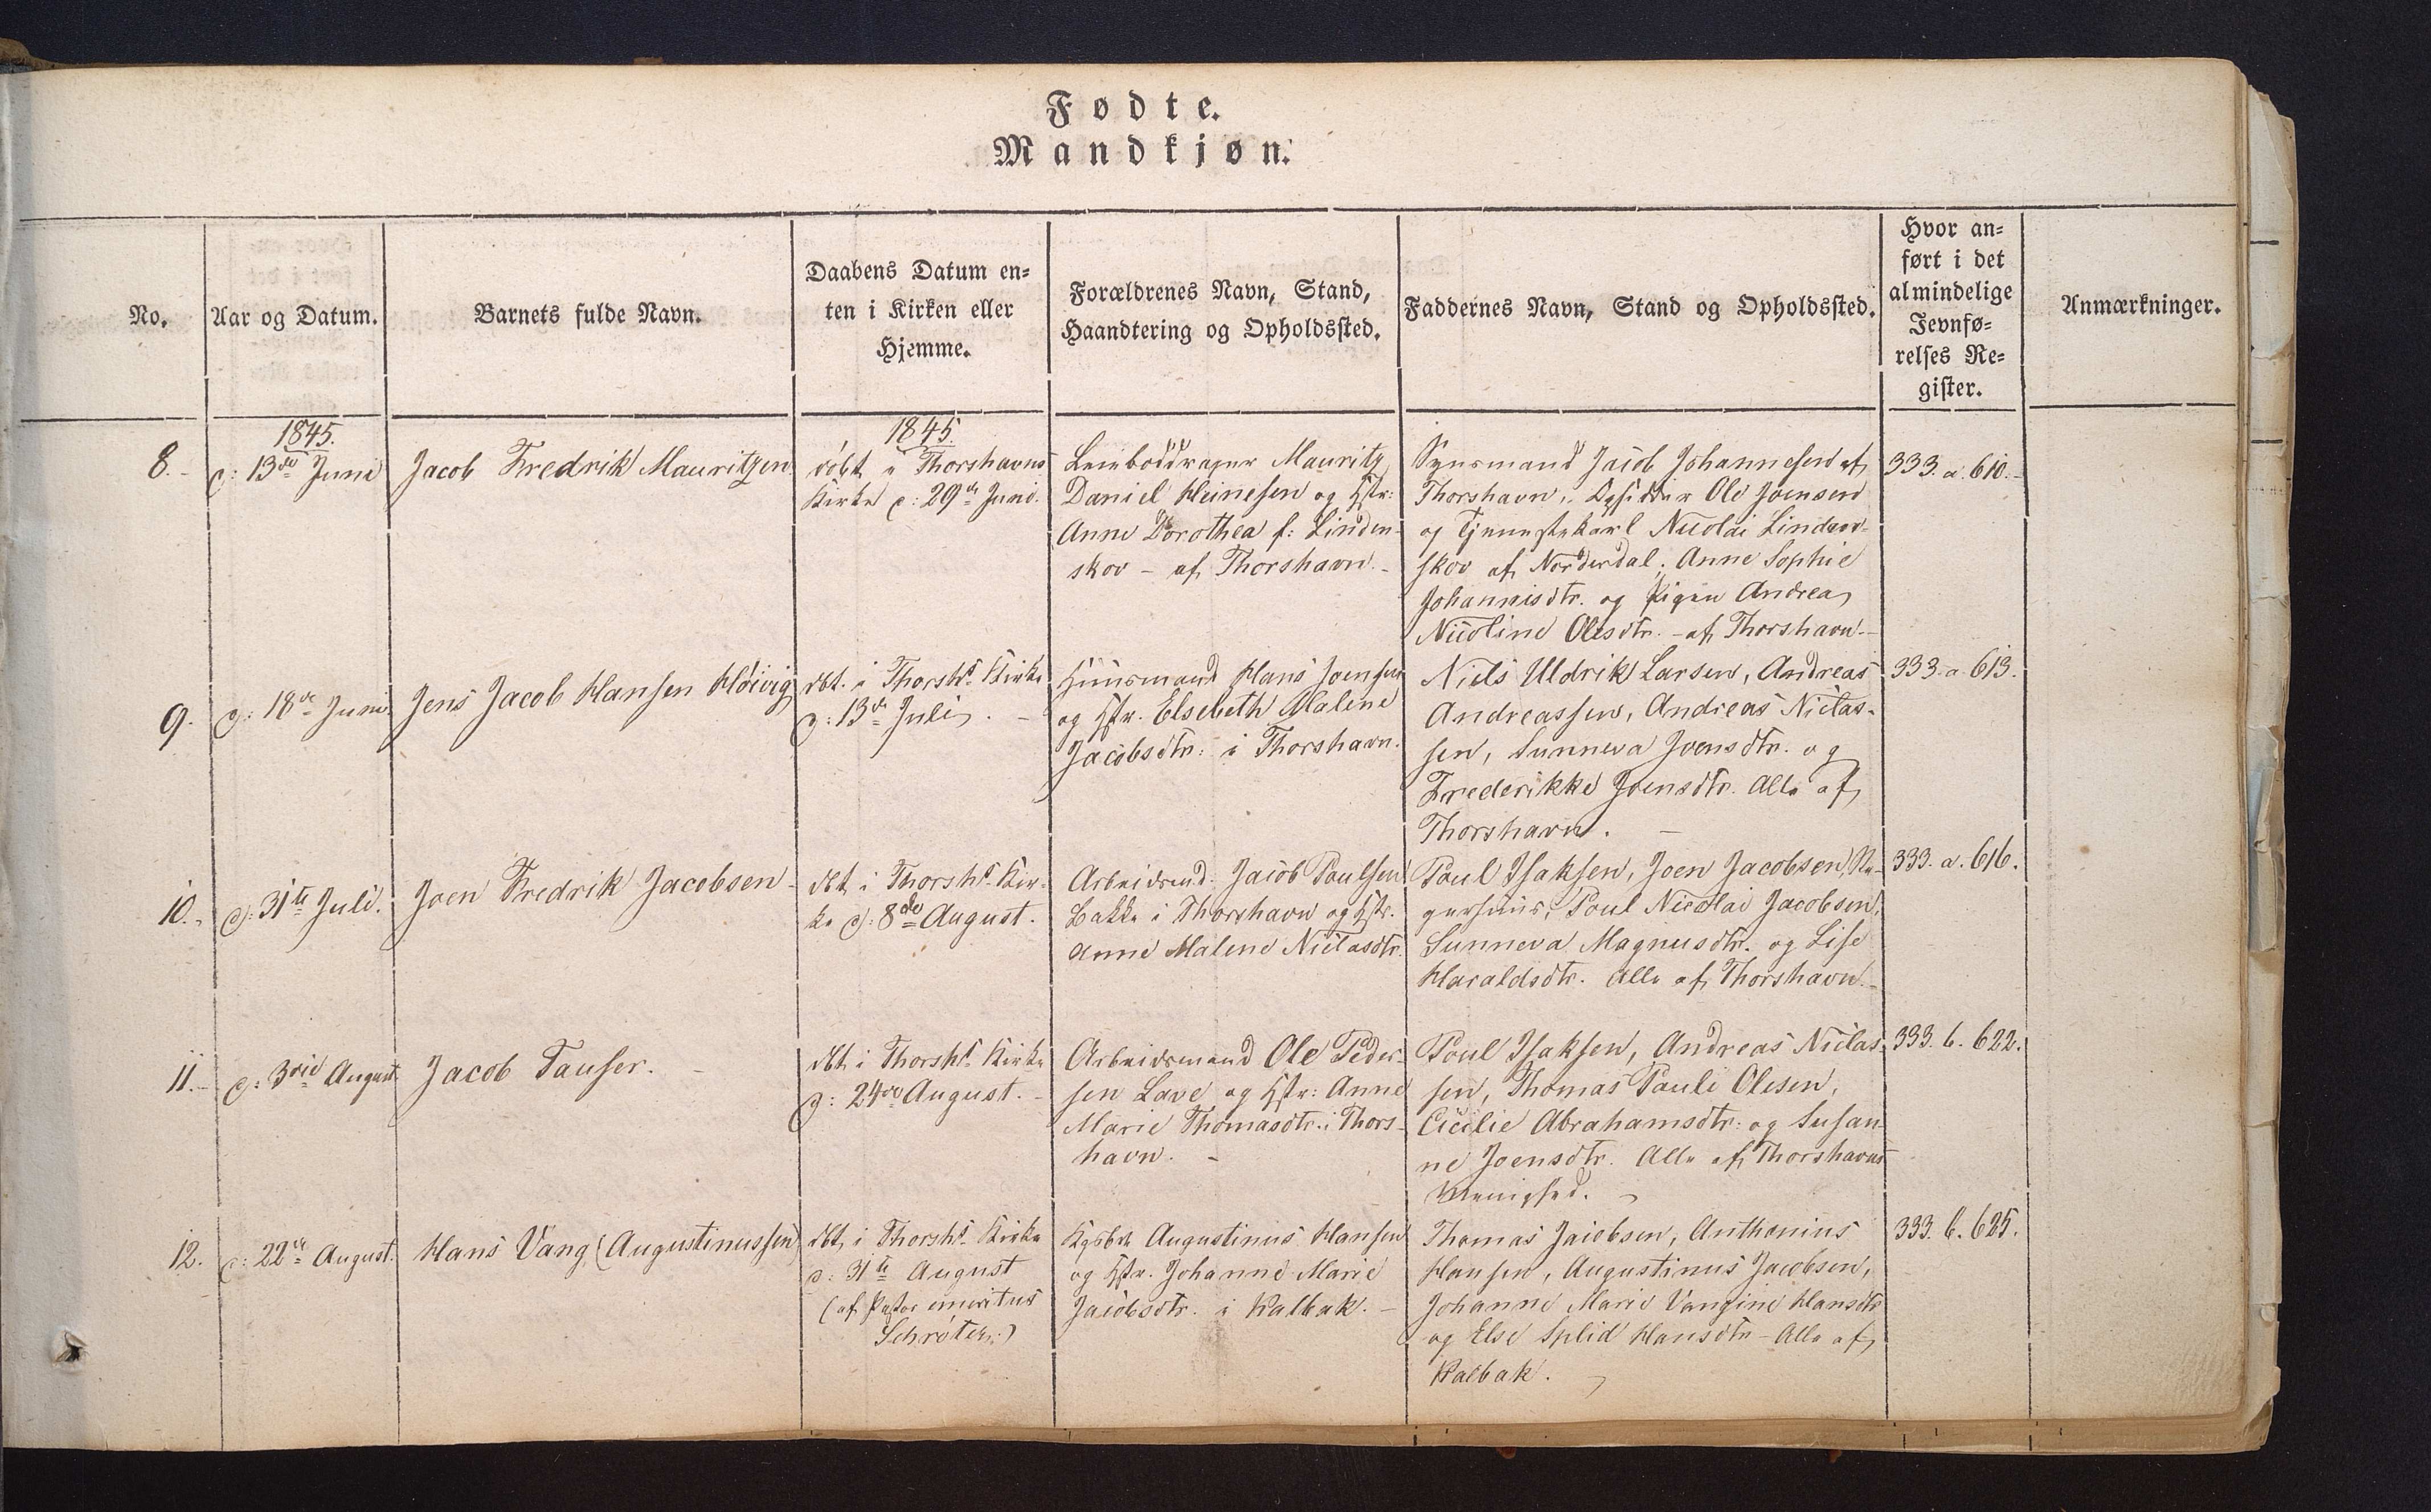 Fødte.
Mandkjøn.
No.
Aar og Datum.
Barnets fulde Navn.
Daabens Datum en-
ten i Kirken eller
Hjemme.
Forældrenes Navn, Stand,
Haandtering og Opholdssted.
Faddernes Navn, Stand og Opholdssted.
Hvor an-
ført i det
almindelige
Jevnfø-
relses Re-
gister.
Anmærkninger.
8.-
1845.
d: 13de Juni
Jacob Fredrik Mauritzen
1845.
döbt i Thorshavns
Kirke d: 29de Juni.
Mauritz
Daniel Heinesen og Hstr:
Anne Dorothea f: Linden-
skov - af Thorshavn.-
Synsmand Jacob Johannesen af
Thorshavn, Ole Joensen
og Tjenestekarl Nicolai Linden-
skov af Norderdal, Anne Sophie
Johannisdtr. og Pigen Andrea
Nicoline Olesdtr. - af Thorshavn.-
333. a. 610.-
9.
d: 18de Juni
Jens Jacob Hansen Höivig
dbt. i Thorshs Kirke
d: 13de Juli. -
Huusmand Hans Joensen
og Hstr. Elsebeth Malene
Jacobsdtr: i Thorshavn.
Niels Uldrik Larsen, Andreas
Andreassen, Andreas Niclas-
sen, Sunneva Joensdtr. og
Frederikke Joensdtr. Alle af
Thorshavn. -
333. a. 613.
10.-
d: 31te Juli.
Joen Fredrik Jacobsen
dbt i Thorshs Kir-
ke d: 8de August.
Arbeidsmd: Jacob Poulsen
Bakke i Thorshavn og Hstr.
Anne Malene Niclasdtr.
Poul Isaksen, Joen Jacobsen,
Poul Nicolai Jacobsen,
Sunneva Magnusdtr. og Lise
Haraldsdtr. Alle af Thorshavn.-
333. a. 616.
11.-
d: 3die August
Jacob Tauser. -
dbt i Thorshs Kirke
d: 24de August. -
Arbeidsmand Ole Peder-
sen Lave og Hstr: Anne
Marie Thomasdtr. i Thors-
havn. -
Poul Isaksen, Andreas Niclas-
sen, Thomas Pauli Olesen,
Cicilie Abrahamsdtr: og Susan-
ne Joensdtr. Alle af Thorshavns
Menighed. -
333. b. 622.
12.
d: 22de August.
Hans Vang (Augustinussen)
dbt i Thorshs Kirke
d: 31te August
(af Pastor emeritus
Schröter.)
Kgsbd. Augustinus Hansen
og Hstr. Johanne Marie
Jacobsdtr. i Kalbak. -
Thomas Jacobsen, Anthonius
Hansen, Augustinus Jacobsen,
Johanne Marie Vangine Hansdtr
og Else Splid Hansdtr - Alle af
Kalbak.
333. b. 625.